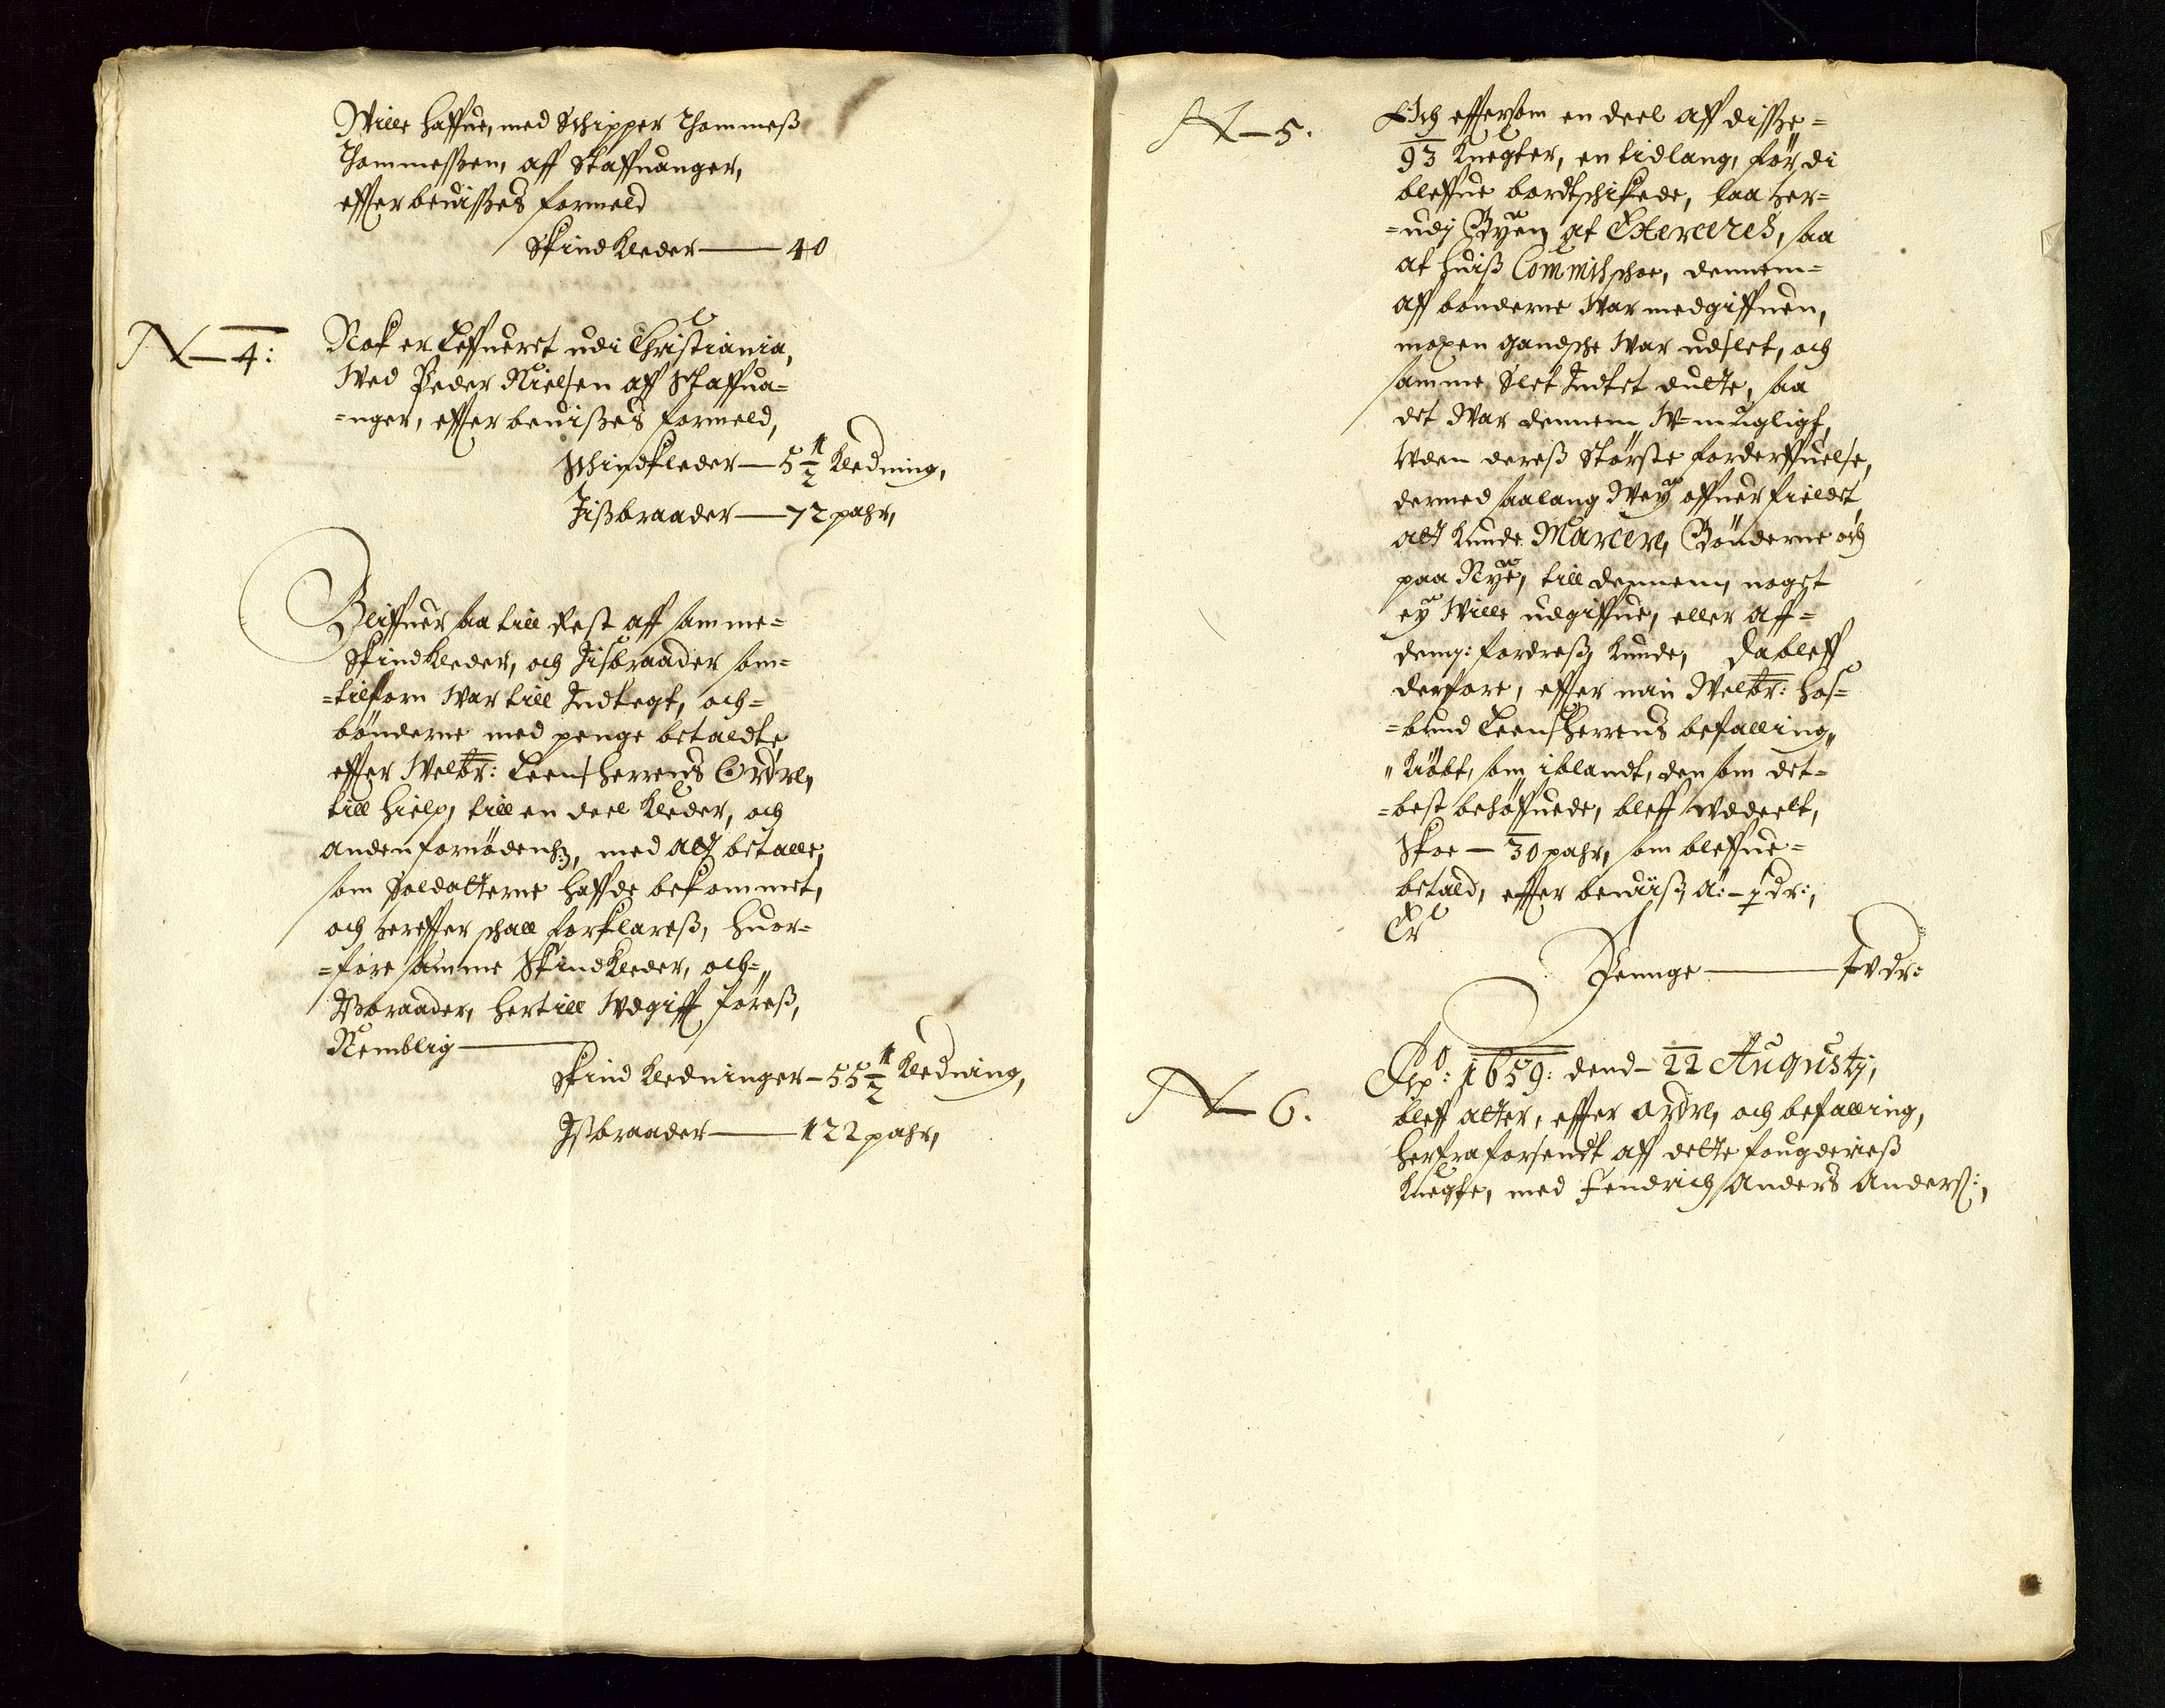 Wille haffue, med Schipper Thommeß
Thommeßen, aff Staffuanger,
effter beuißes formeld
Skind kleder — 40
N — 4:
Nok er Leffueret udi Christiania,
Wed Peder Nielsen aff Staffua=
=nger, effter beuißes formeld,
Schindkleder — 5 1/2 kledning,
Jißbraader — 72 pahr,
Bliffuer saa till Rest aff samme=
Skindkleder, och Jisbraader som=
=tilforn War till Indkegt, och=
bönderne med penge betaldte
effter Welbr: Leens Herrens Ordre,
till hielp, till en deel kleder, och
anden fornödenhz, med alt betalle,
som Soldatterne haffde bekommet,
och hereffter schall forklareß, huor=
=fore samme Skindkleder, och="
Ißbraader, her till Udgifft föreß,
Nemblig —
Skind kledninger — 55 1/2 kledning,
Ißbraader — 122 pahr,
N — 5.
Och effersom en deel aff diße=
93 knegter, en tidlang, för di
bleffue bordtschikede, laa her=
=udj Byen at Exerceres, saa
at huiß Commischoe, dennem=
aff bönderne War medgiffuen,
moxen gandsche War udslet, och
samme slet Indtet dulte, saa
det War dennem W=mugligt,
Uden dereß Störste forderffuelse,
dermed saalang Wey offuer fieldet
alt kunde Marcere, Bönderne och
paa Nye, till dennem, noget
ey Wille udgiffue, eller aff=
dem: fordreß, kunde, da bleff
derfore, effter min Welbr: Hos=
=bund Leens Herrens befalling"
"kiöbt, som iblandt, den som det=
=best behöffuede, bleff uddeelt,
Skoe — 30 pahr, som bleffue=
betald, effter beuiiß, á: — 1/2 dr:,
Er
Pennge — 15 dr:
N — 6.
1659: dend — 22 Augustj,
bleff atter, effter ordre, och befalling,
herfra forsendt aff dette fougderieß
knegte, med Fendrich Anders Anderß:,